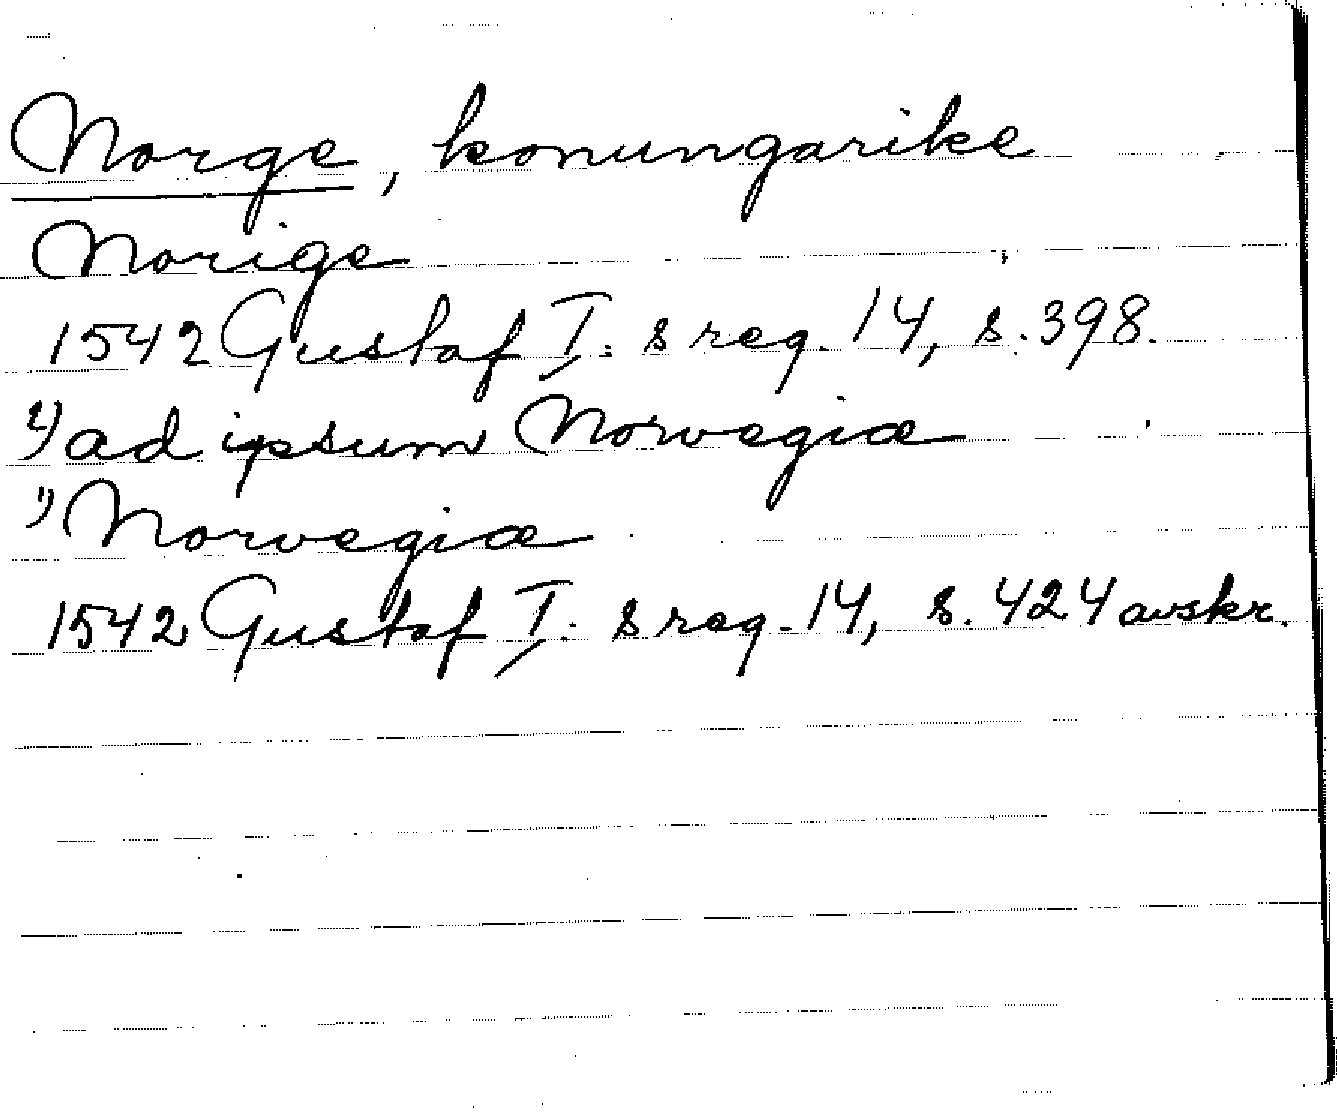 Norge, konungarike
Norige
1542 Gustaf I: s reg. 14, s. 398.
1) ad ipsum Norvegiæ
") Norvegiæ
1542 Gustaf I: s reg. 14, s. 424 avskr.